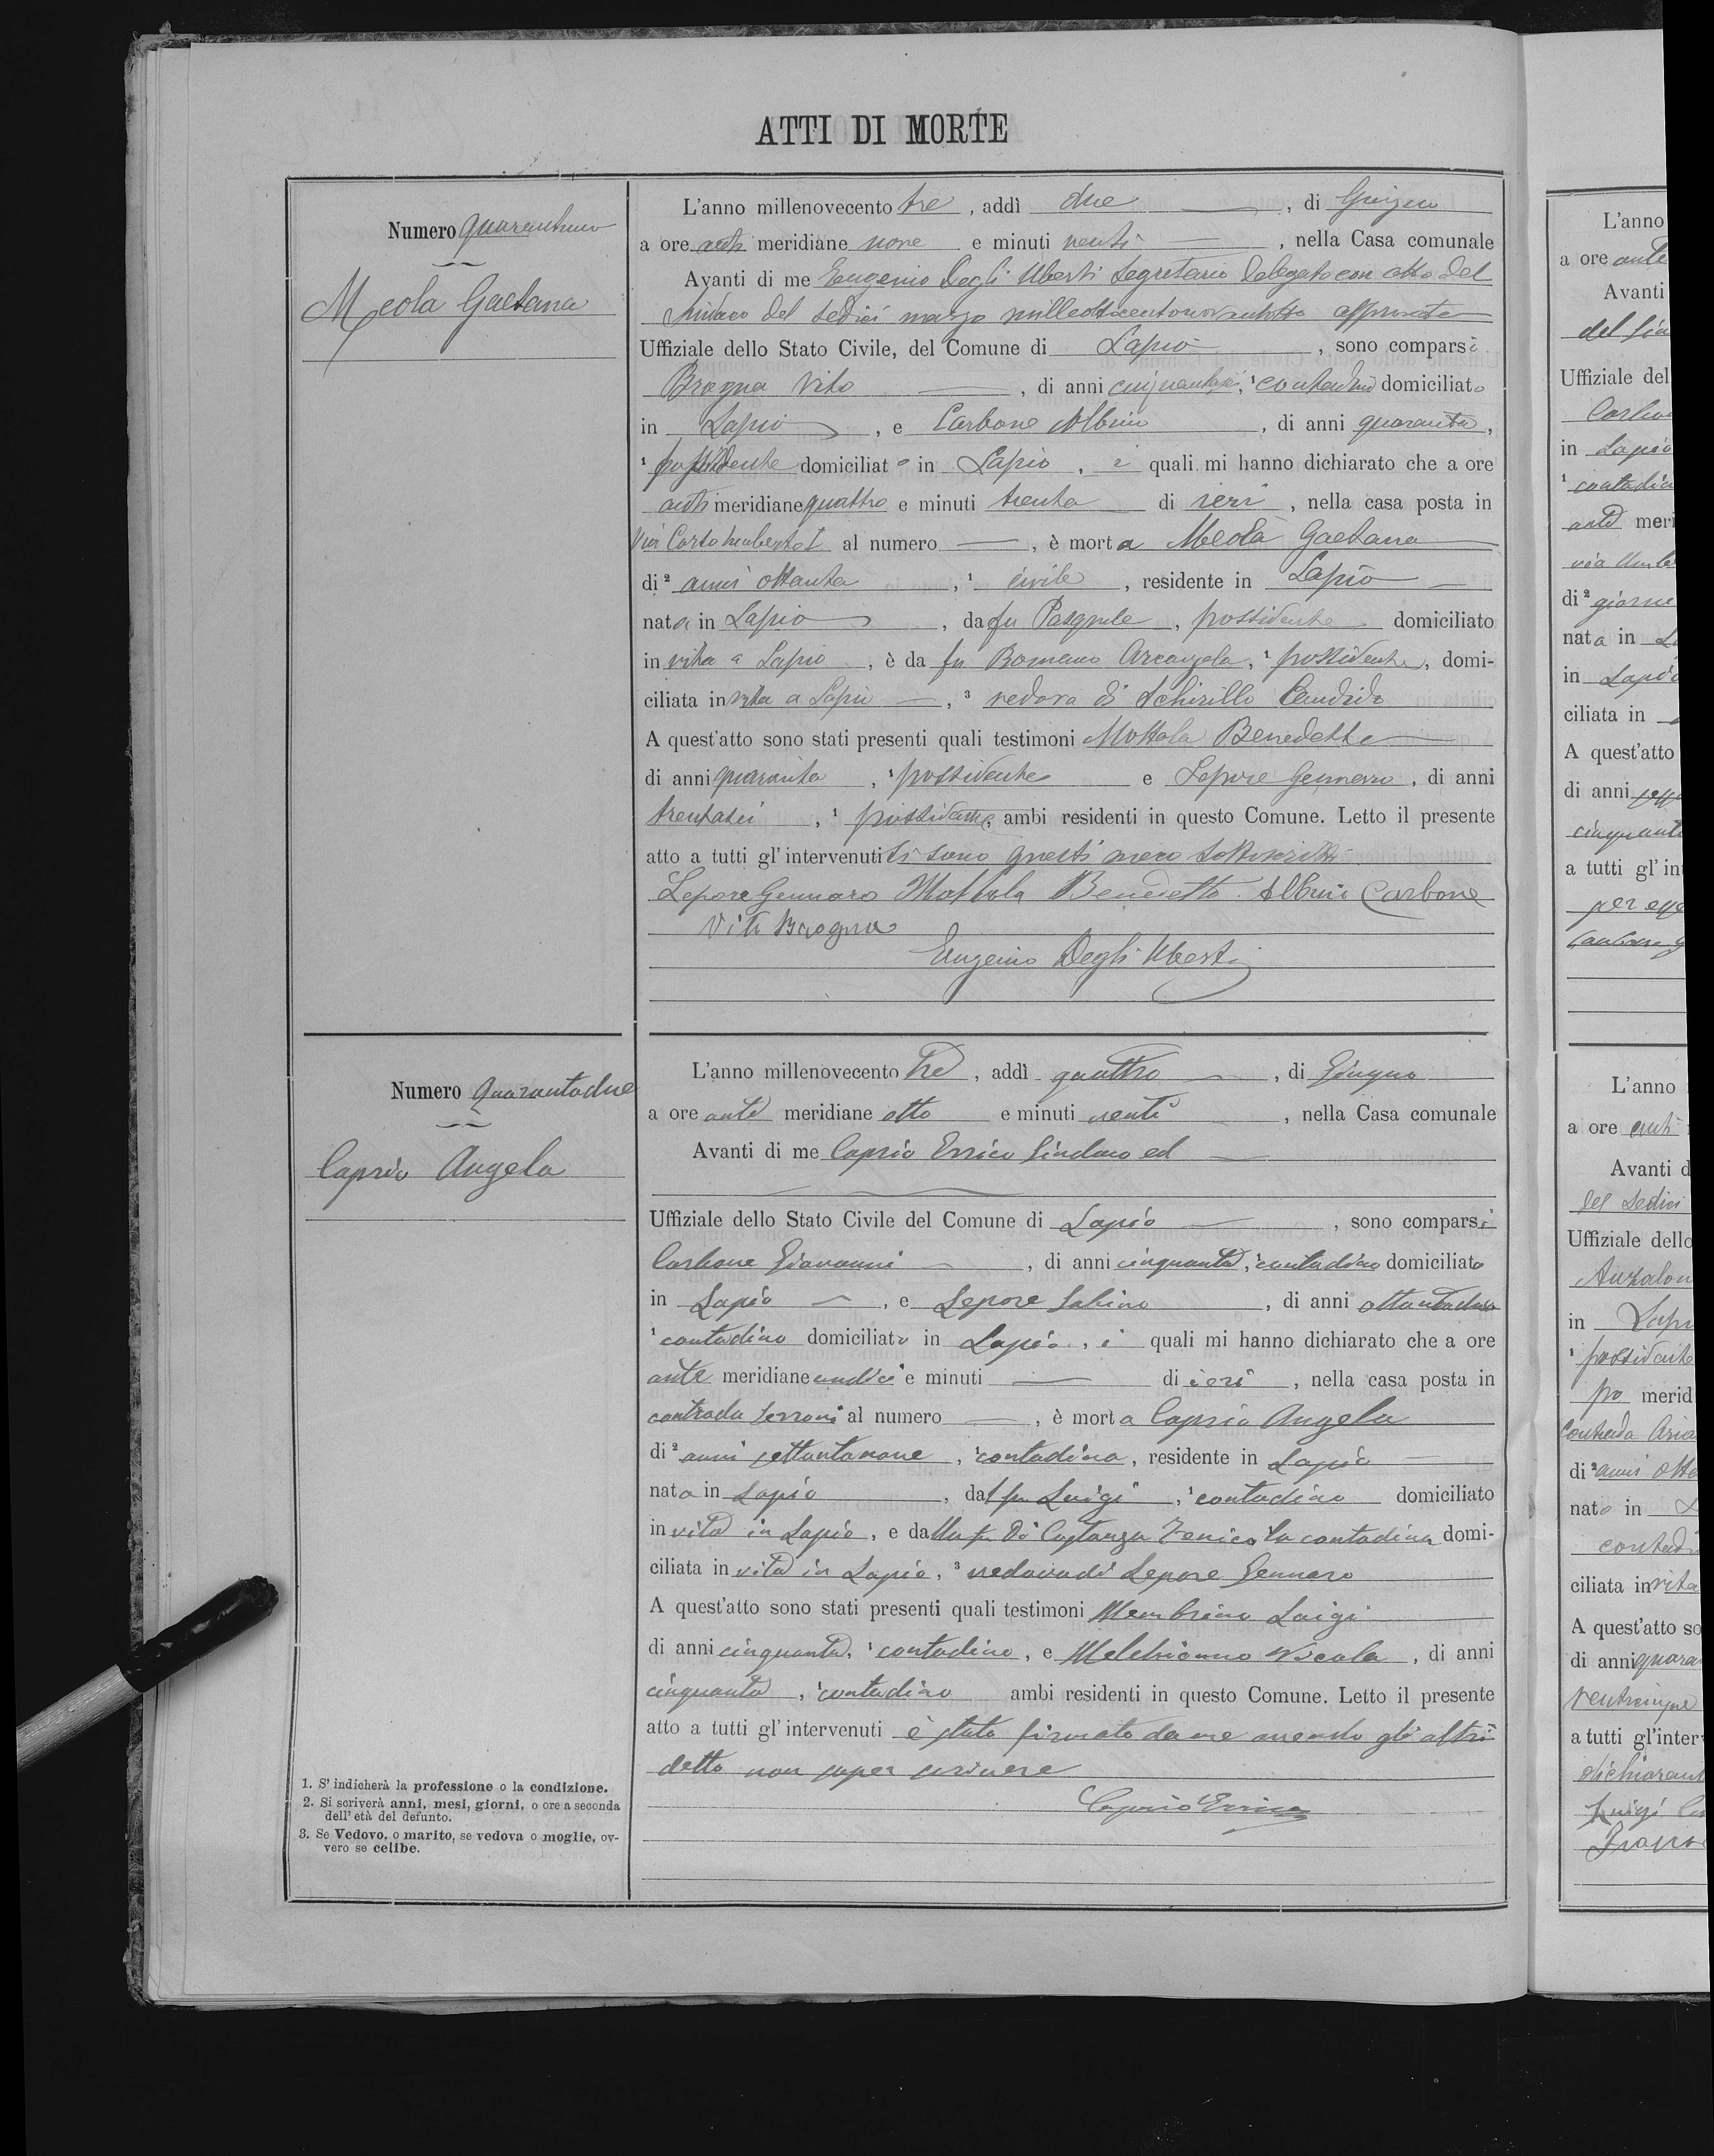 ATTI DI MORTE
Numero quarantuno
Meola Gaetana
L'anno millenovecento tre, addì due, di Giugno
a ore anti meridiane nove e minuti venti, nella Casa comunale
Avanti di me Eugenio Degli Uberti Segretario Delegato con atto del
Sindaco del sedici marzo milleottocentonovantotto approvato
Uffiziale dello Stato Civile, del Comune di Lapio, sono comparsi
Brogna Vito, di anni cinquantasei, ¹ contadino domiciliato
in Lapio, e Carbone Albino, di anni quaranta,
¹ possidente domiciliato in Lapio, i quali mi hanno dichiarato che a ore
anti meridiane quattro e minuti trenta di ieri, nella casa posta in
Via Corso Umberto I al numero —, è morta Meola Gaetana
di ² anni ottanta, ¹ civile, residente in Lapio
nata in Lapio, da fu Pasquale, possidente domiciliato
in vita a Lapio, è da fu Romano Arcangela, ¹ possidente, domi-
ciliata in vita a Lapio, ³ vedova di Schirillo Candido
A quest'atto sono stati presenti quali testimoni Mottola Benedetto
di anni quaranta, ¹ possidente e Lepore Gennaro, di anni
trentasei, ¹ possidente, ambi residenti in questo Comune. Letto il presente
atto a tutti gl'intervenuti si sono questi meco sottoscritti
Lepore Gennaro Mottola Benedetto Albino Carbone
Vito Brogna
Eugenio Degli Uberti
Numero Quarantadue
Caprio Angela
L'anno millenovecento tre, addì quattro, di Giugno
a ore anti meridiane otto e minuti venti, nella Casa comunale
Avanti di me Caprio Errico Sindaco ed
Uffiziale dello Stato Civile del Comune di Lapio, sono comparsi
Carbone Giovanni, di anni cinquanta, ¹ contadino domiciliato
in Lapio, e Lepore Sabino, di anni ottantadue
¹ contadino domiciliato in Lapio, i quali mi hanno dichiarato che a ore
ante meridiane undici e minuti — di ieri, nella casa posta in
contrada Serroni al numero —, è morta Caprio Angela
di ² anni settantanove, ¹ contadina, residente in Lapio
nata in Lapio, dal fu Luigi, ¹ contadino domiciliato
in vita in Lapio, e dalla fu Di Costanza contadina domi-
ciliata in vita in Lapio, ³ vedova di Lepore Gennaro
A quest'atto sono stati presenti quali testimoni Membrino Luigi
di anni cinquanta, ¹ contadino, e Melchionno Nicola, di anni
cinquanta, ¹ contadino ambi residenti in questo Comune. Letto il presente
atto a tutti gl'intervenuti è stato firmato da me avendo gli altri
detto non saper scrivere
Caprio Errico
1. S'indicherà la professione o la condizione.
2. Si scriverà anni, mesi, giorni, o ore a seconda
dell'età del defunto.
3. Se Vedovo, o marito, se vedova o moglie, ov-
vero se celibe.
L'anno
a ore ante
Avanti
Uffiziale del
in Lapio
¹ contadin
meri
di ² giorni
nata in
in Lapio
ciliata in
A quest'atto
di anni
cinquant
a tutti gl'in
L'anno
a ore anti
Avanti d
del sedici
Uffiziale dello
in Lapi
¹ possidente
po merid
Contrada
di ² anni
nato in
contadi
ciliata in vita
A quest'atto so
di anni quara
ventcinque
a tutti gl'inter
dichiarant
Luigi